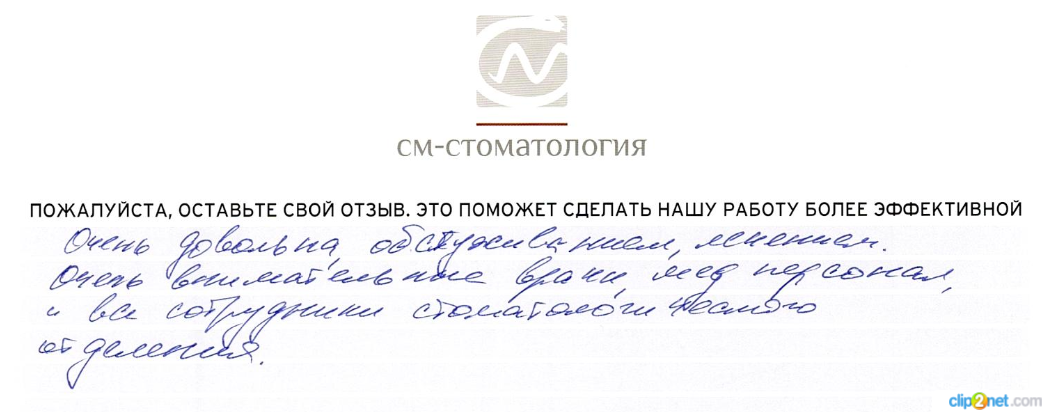 см-стоматология
ПОЖАЛУЙСТА, ОСТАВЬТЕ СВОЙ ОТЗЫВ. ЭТО ПОМОЖЕТ СДЕЛАТЬ НАШУ РАБОТУ БОЛЕЕ ЭФФЕКТИВНОЙ
Очень довольна обслуживанием, лечением.
Очень внимательные врачи, мед персонал,
и все сотрудники стоматологического
отделения.
clip2net.com